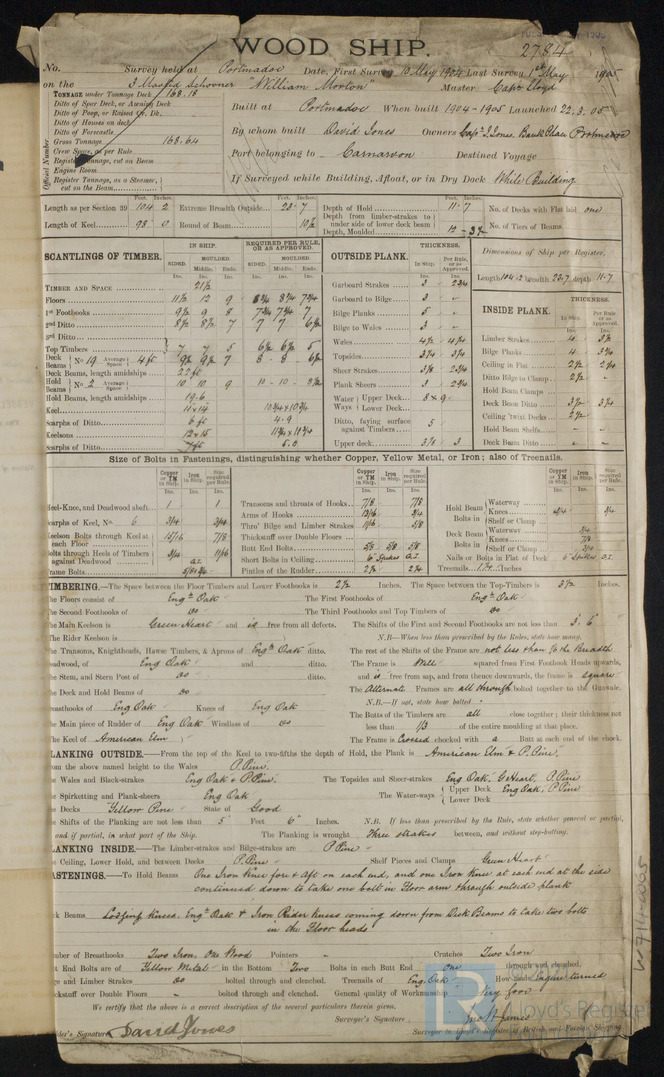 WOOD SHIP.
2784
No. Survey held at Portmadoc Date, First Survey 10 May 1904 Last Survey 1st May 1905
on the 3 Masted Schooner "William Morton" Master Capt Lloyd
TONNAGE under Tonnage Deck 168.18
Ditto of Spar Deck, or Awning Deck
Ditto of Poop, or Raised Qr. Dk.
Ditto of Houses on deck
Ditto of Forecastle
Gross Tonnage 168.64
Crew Space, as per Rule
Register Tonnage, cut on Beam
Engine Room
Register Tonnage, as a Steamer, cut on the Beam
Official Number
Built at Portmadoc When built 1904-1905 Launched 22.3.05
By whom built David Jones Owners Capt J. Jones, Bank Place Portmadoc
Port belonging to Carnarvon Destined Voyage
If Surveyed while Building, Afloat, or in Dry Dock While Building
Length as per Section 39 104 2 Extreme Breadth Outside 23 7 Depth of Hold 11 7 No. of Decks with Flat laid one
Length of Keel 98 0 Round of Beam 10½ Depth from limber-strakes to under side of lower deck beam
Depth, Moulded 12 - 3¾ No. of Tiers of Beams
SCANTLINGS OF TIMBER.
IN SHIP. REQUIRED PER RULE, OR AS APPROVED.
SIDED. MOULDED. Middle. Ends.
TIMBER AND SPACE 21½
Floors 11½ 12 9
1st Foothooks 9½ 9 8
2nd Ditto 8½ 8½ 7 7 7 6½
3rd Ditto
Top Timbers 7 7 5 6½ 6½ 5
Deck Beams No 19 Average Space 4 ft 9½ 9½ 7 8 - 8 - 6½
Deck Beams, length amidships 22 ft
Hold Beams No 2 Average Space 10 10 9 10 - 10 - 8½
Hold Beams, length amidships 19.6
Keel 11 x 14 10¾ x 10¾
Scarphs of Ditto 6 ft 4-9
Keelsons 12 x 15 11¾ x 11¾
Scarphs of Ditto 7 ft 5.3
OUTSIDE PLANK. THICKNESS.
In Ship. Per Rule, or as Approved.
Garboard Strakes 3 2¾
Garboard to Bilge 3 "
Bilge Planks 5 "
Bilge to Wales 3 "
Wales 4½ 4¼
Topsides 3¼ 3¼
Sheer Strakes 3½ 2¾
Plank Sheers 3 2¾
Water Ways Upper Deck 8 x 9
Lower Deck
Ditto, faying surface against Timbers 5
Upper deck 3½ 3
Dimensions of Ship per Register,
Length 104.2 breadth 23.7 depth 11.7
INSIDE PLANK. THICKNESS.
In Ship. Per Rule or as Approved.
Limber Strakes 4 3½
Bilge Planks 4 3¾
Ceiling in Flat 2½ 2¼
Ditto Bilge to Clamp 2½ "
Hold Beam Clamps
Deck Beam Ditto 3½ 3¼
Ceiling 'twixt Decks 2½
Hold Beam Shelfs - -
Deck Beam Ditto - -
Size of Bolts in Fastenings, distinguishing whether Copper, Yellow Metal, or Iron; also of Treenails.
Copper or YM in Ship. Iron in Ship. Size required per Rule.
Heel-Knee, and Deadwood abaft 1 1
Scarphs of Keel, No. 6 3/4 3/4
Keelson Bolts through Keel at each Floor 15/16 7/8
Bolts through Heels of Timbers against Deadwood 3/4 11/16
Frame Bolts
Transoms and throats of Hooks 7/8 7/8
Arms of Hooks 13/16 3/4
Thro' Bilge and Limber Strakes 11/16 5/8
Thickstuff over Double Floors
Butt End Bolts 5/8 5/8 5/8
Short Bolts in Ceiling 6" Spikes O.I.
Pintles of the Rudder 2½ 2¼
Hold Beam Bolts in Waterway
Knees 3/4 3/4
Shelf or Clamp
Deck Beam Bolts in Waterway 3/4
Knees 7/8
Shelf or Clamp 3/4
Nails or Bolts in Flat of Deck 6" Spikes O.I.
Treenails Inches
TIMBERING.—The Space between the Floor Timbers and Lower Foothooks is 2½ Inches. The Space between the Top-Timbers is 3½ Inches.
The Floors consist of Engh Oak The First Foothooks of Engh Oak
The Second Foothooks of Do The Third Foothooks and Top Timbers of Do
The Main Keelson is Green Heart and is free from all defects. The Shifts of the First and Second Foothooks are not less than 3.6
The Rider Keelson is N.B—When less than prescribed by the Rules, state how many.
The Transoms, Knightheads, Hawse Timbers, & Aprons of Engh Oak ditto. The rest of the Shifts of the Frame are not less than ⅙ the Breadth
Deadwood, of Eng Oak and ditto. The Frame is Well squared from First Foothook Heads upwards,
The Stem, and Stern Post of Do and ditto. and is free from sap, and from thence downwards, the frame is square
The Deck and Hold Beams of Do The Alternate Frames are all through bolted together to the Gunwale.
Breasthooks of Eng Oak Knees of Eng Oak N.B.—If not, state how bolted
The Main piece of Rudder of Eng Oak Windlass of Do The Butts of the Timbers are all close together; their thickness not less than 1/3 of the entire moulding at that place.
The Keel of American Elm The Frame is Crossed chocked with a Butt at each end of the chock.
PLANKING OUTSIDE.—From the top of the Keel to two-fifths the depth of Hold, the Plank is American Elm & P. Pine.
From the above named height to the Wales P. Pine.
The Wales and Black-strakes Eng Oak & P. Pine. The Topsides and Sheer-strakes Eng Oak, G Heart, P. Pine
The Spirketting and Plank-sheers Eng Oak The Water-ways Upper Deck Eng Oak, P. Pine
Lower Deck
The Decks Yellow Pine State of Good
The Shifts of the Planking are not less than 5 Feet 6 Inches. N.B. If less than prescribed by the Rule, state whether general or partial,
and if partial, in what part of the Ship. The Planking is wrought Three strakes between, and without step-butting.
PLANKING INSIDE.—The Limber-strakes and Bilge-strakes are P. Pine
The Ceiling, Lower Hold, and between Decks P. Pine Shelf Pieces and Clamps Green Heart
FASTENINGS.—To Hold Beams One Iron Knee fore & Aft on each end, and one Iron Knee at each end at the side
continued down to take one bolt in Floor arm through outside plank
Deck Beams Lodging Knees. Engh Oak & Iron Rider knees coming down from Deck Beams to take two bolts
in the Floor heads
Number of Breasthooks Two Iron, One Wood Pointers - Crutches Two Iron
Butt End Bolts are of Yellow Metal in the Bottom Two Bolts in each Butt End one through and clenched.
Bilge and Limber Strakes Do bolted through and clenched. Treenails of Eng. Oak How made Engine turned
Thickstuff over Double Floors - bolted through and clenched. General quality of Workmanship Very Good
We certify that the above is a correct description of the several particulars therein given.
Builder's Signature David Jones
Surveyor's Signature
Surveyor to Lloyd's Register of British and Foreign Shipping
Lloyd's Register